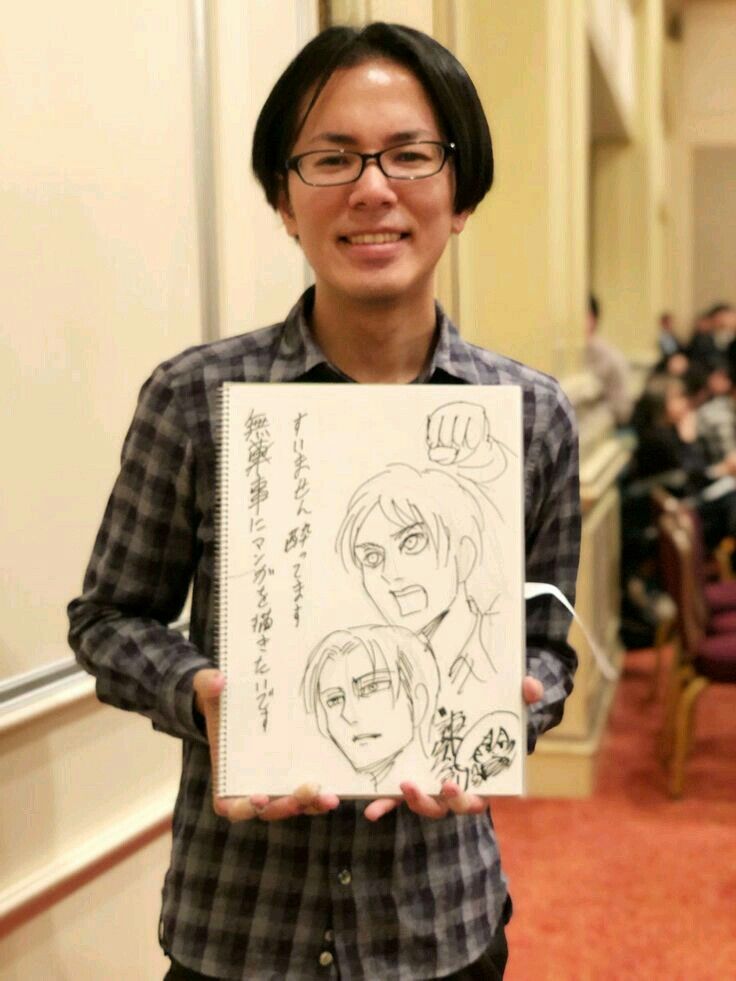 すいません 酔ってます
無事にマンガを描きたいです